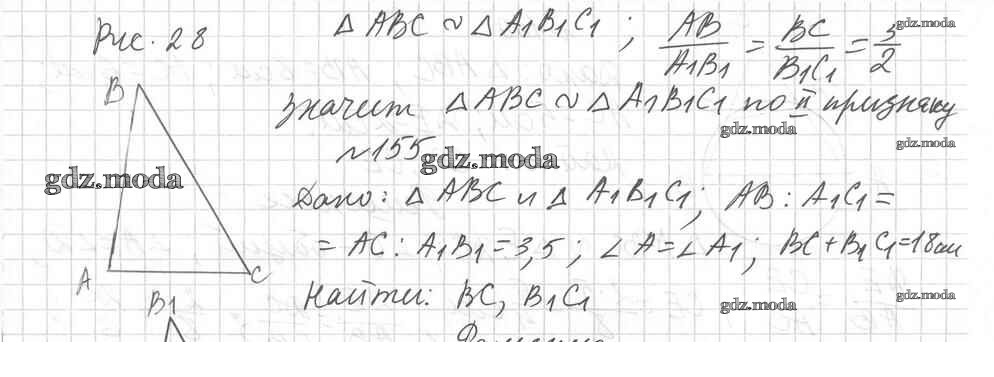 Рис. 28
△ ABC ∾ △ A₁B₁C₁ ; AB/A₁B₁ = BC/B₁C₁ = 3/2
значит △ ABC ∾ △ A₁B₁C₁ по II признаку
N155
Дано: △ ABC и △ A₁B₁C₁; AB : A₁C₁ =
= AC : A₁B₁ = 3,5 ; ∠A = ∠A₁ ; BC + B₁C₁ = 18см
Найти: BC, B₁C₁
B
A
C
B₁
gdz.moda
gdz.moda
gdz.moda
gdz.moda
gdz.moda
gdz.moda
gdz.moda